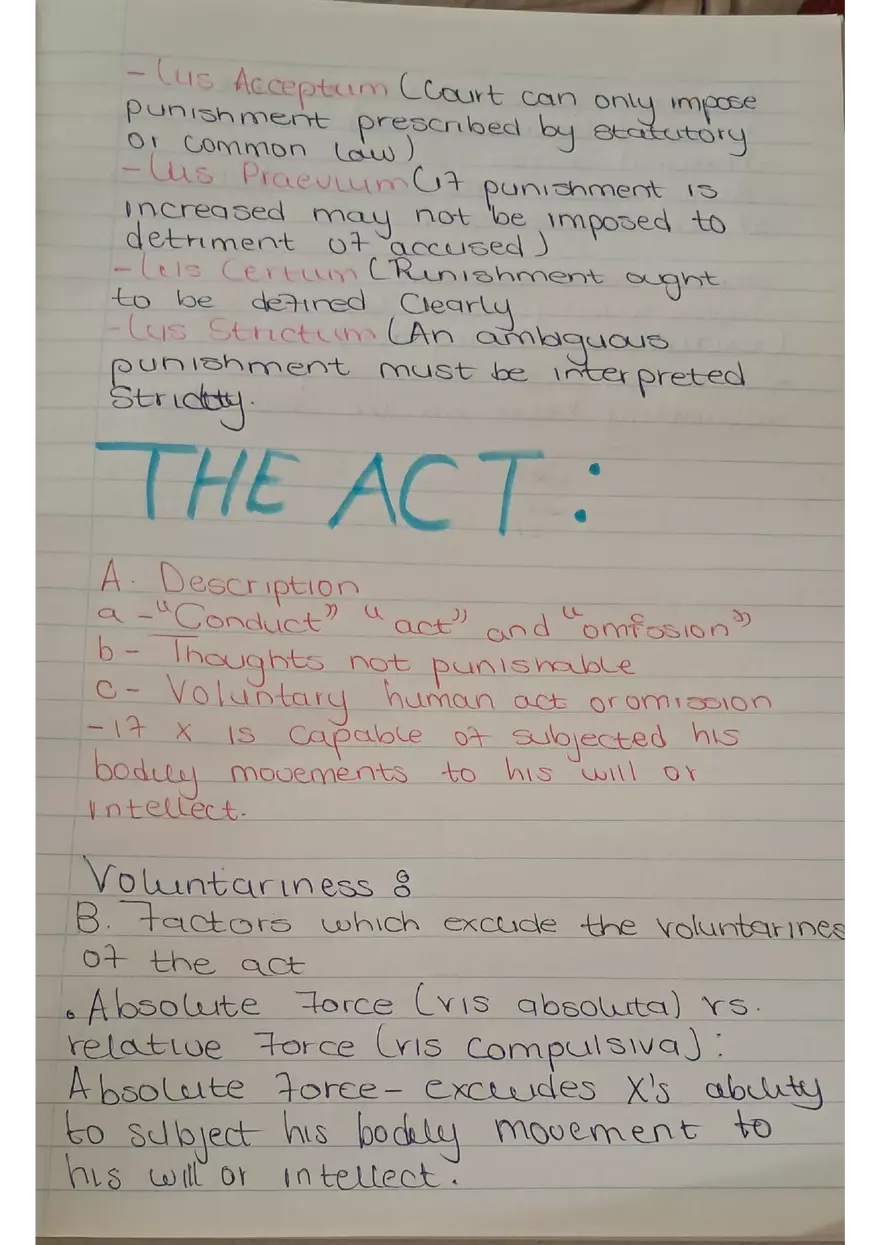 - Ius Acceptum (Court can only impose
punishment prescribed by statutory
or common law)
- Ius Praevium (if punishment is
increased may not be imposed to
detriment of accused)
- Ius Certum (Punishment ought
to be defined clearly
- Ius Strictum (An ambiguous
punishment must be interpreted
Strictly.
THE ACT :
A. Description
a - "Conduct" "act" and "omission"
b - Thoughts not punishable
c - Voluntary human act or omission
- if x is capable of subjected his
bodily movements to his will or
intellect.
Voluntariness :
B. Factors which exclude the voluntarines
of the act
. Absolute Force (vis absoluta) vs.
relative Force (vis compulsiva) :
Absolute Force - excludes X's ability
to subject his bodily movement to
his will or intellect.